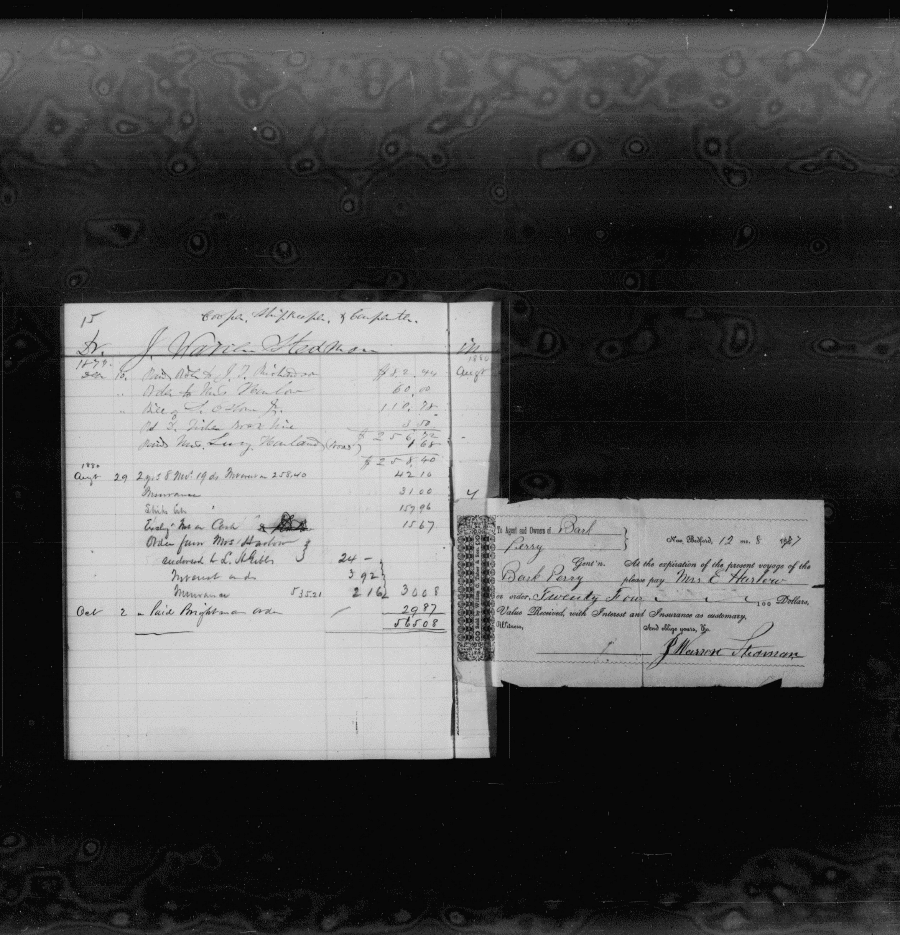 15
Cooper, Shipkeeper, & Carpenter
Dr. J. Warren Stedman in
1880
Augt
10 Paid Order J. T. Richardson $82.44
Order to Mrs 60.00
Bill of Jr. 110.78
Boat 3.50
$256.72
Paid Mrs. Lucy (Boat) 1.68
$258.40
1880
Augt 29 2 yrs 8 Mos 19 ds Interest on 258.40 42.16
Insurance 31.00
159.96
Cash 15.67
Order favor Mrs Harlow
endorsed to L. Gibbs 24 -
Interest on do 3.92
Insurance 535.21 2.16 30.08
Oct 2 " Paid Brightman order 29.87
565.08
4
To Agent and Owners of Bark
Perry
New Bedford, 12 m. 8 1877
Gent'n. At the expiration of the present voyage of the
Bark Perry please pay Mrs E Harlow
or order, Twenty Four 100 Dollars,
Value Received, with Interest and Insurance as customary,
And oblige yours, &c.
Witness,
J Warren Stedman